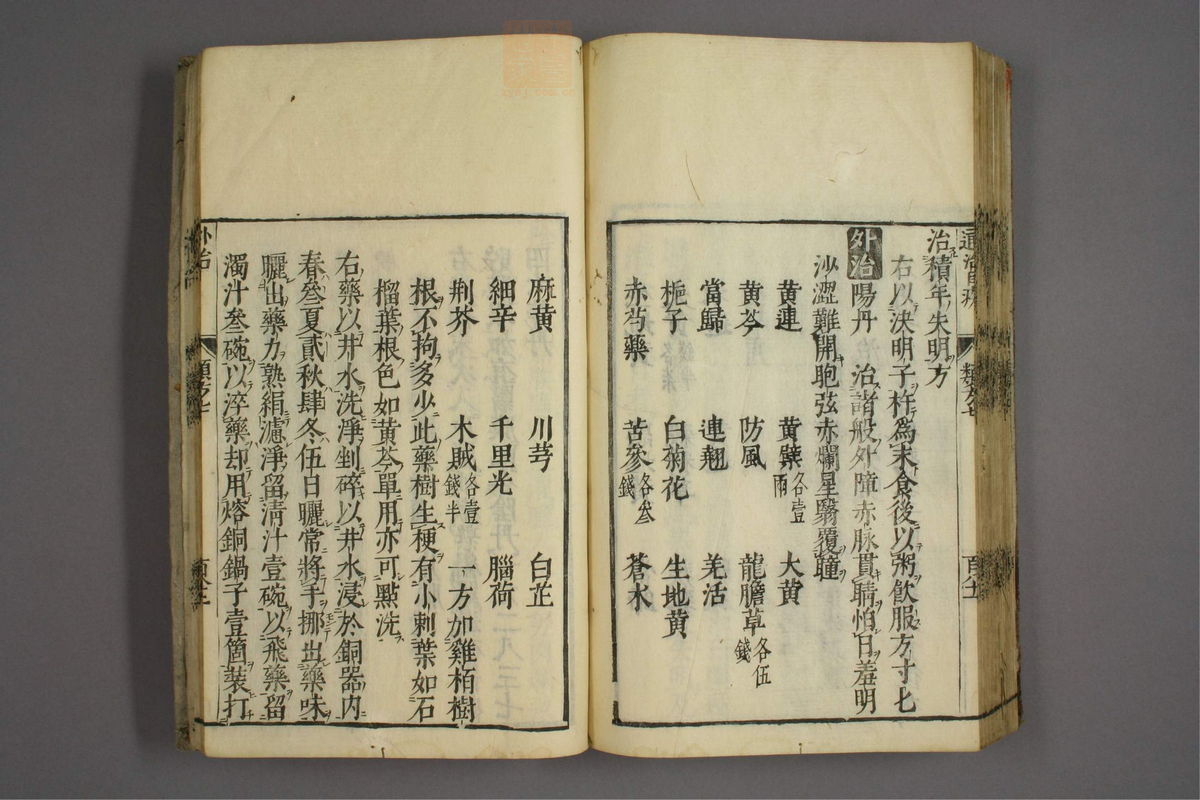 治積年失明方
右以決明子杵為末食後以粥飲服方寸七
外治陽丹 治諸般外障赤脉貫睛怕日羞明
沙澀難開胞弦赤爛星翳覆瞳
黄連 黄蘗各壹兩 大黄
黄芩 防風 龍膽草各伍錢
當歸 連翹 羌活
梔子 白菊花 生地黄
赤芍藥 苦參各叁錢 蒼朮
麻黄 川芎 白芷
細辛 千里光 腦荷
荆芥 木賊各壹錢半 一方加雞栢樹
根不拘多少此藥樹生梗有小刺葉如石
榴葉根色如黄芩單用亦可點洗
右藥以井水洗淨剉碎以井水浸於銅器内
春叁夏貳秋肆冬伍日曬常將手挪出藥味
曬出藥力熟絹濾淨留清汁壹碗以飛藥留
濁汁叁碗以淬藥却用熔銅鍋子壹箇裝打
外治
類方七